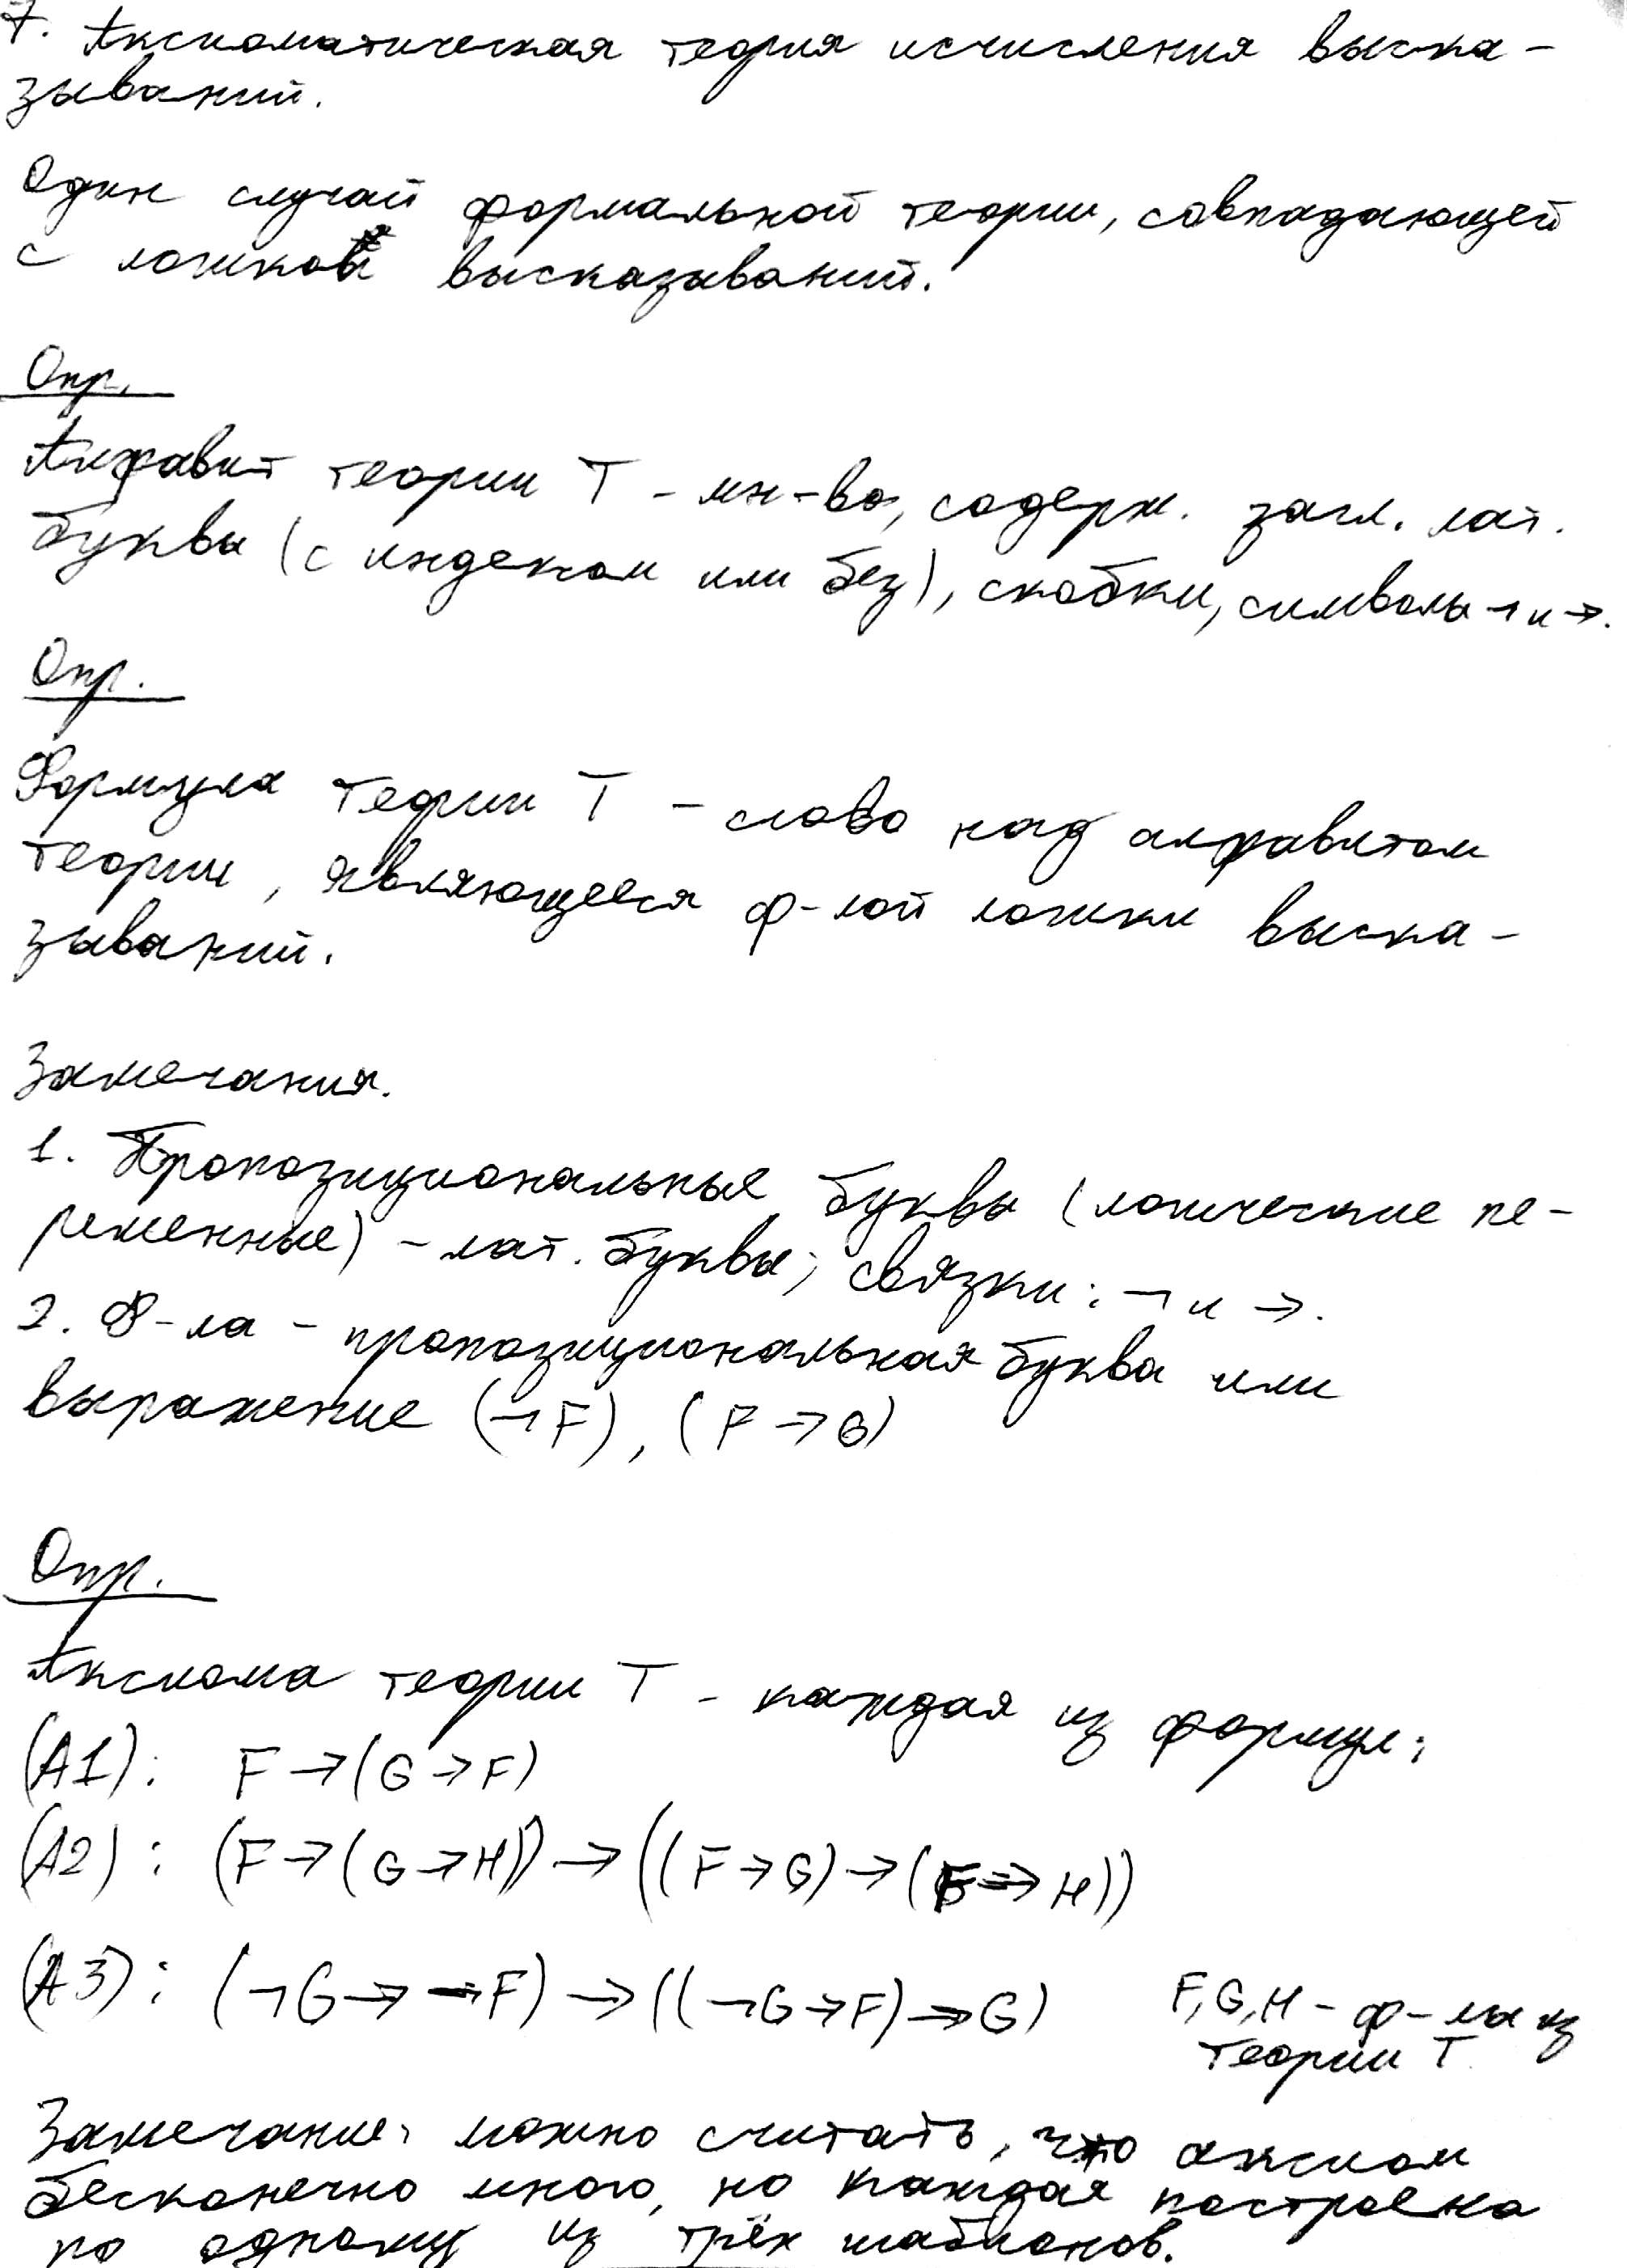 7. Аксиоматическая теория исчисления выска-
зываний.
Один случай формальной теории, совпадающей
с логикой высказываний.
Опр.
Алфавит теории T - мн-во, содерж. загл. лат.
буквы (с индексом или без), скобки, символы ¬ и →.
Опр.
Формула теории T - слово над алфавитом
теории, являющееся ф-лой логики выска-
зываний.
Замечания.
1. Пропозициональные буквы (логические пе-
ременные) - лат. буквы; связки: ¬ и →.
2. Ф-ла - пропозициональная буква или
выражение (¬F), (F → G)
Опр.
Аксиома теории T - каждая из формул:
(A1): F → (G → F)
(A2): (F → (G → H)) → ((F → G) → (F → H))
(A3): (¬G → ¬F) → ((¬G → F) → G) F, G, H - ф-лы из
теории T.
Замечание: можно считать, что аксиом
бесконечно много, но каждая построена
по одному из трёх шаблонов.